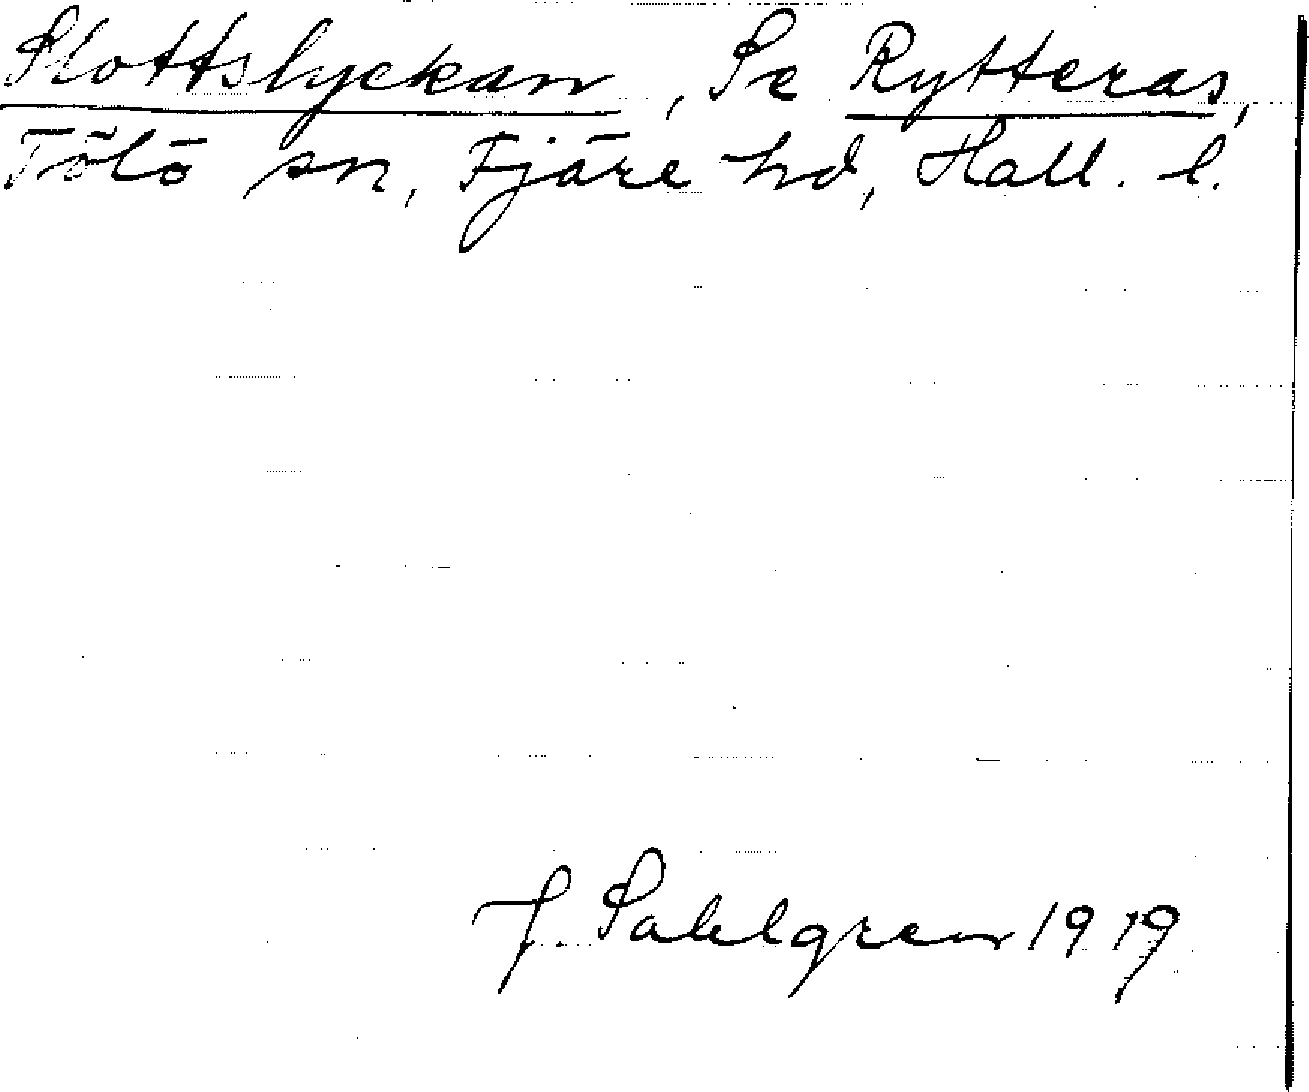 Slottslyckan, Se Rytteras,
Tölö sn, Fjäre hd, Hall. l.
J. Sahlgren 1919